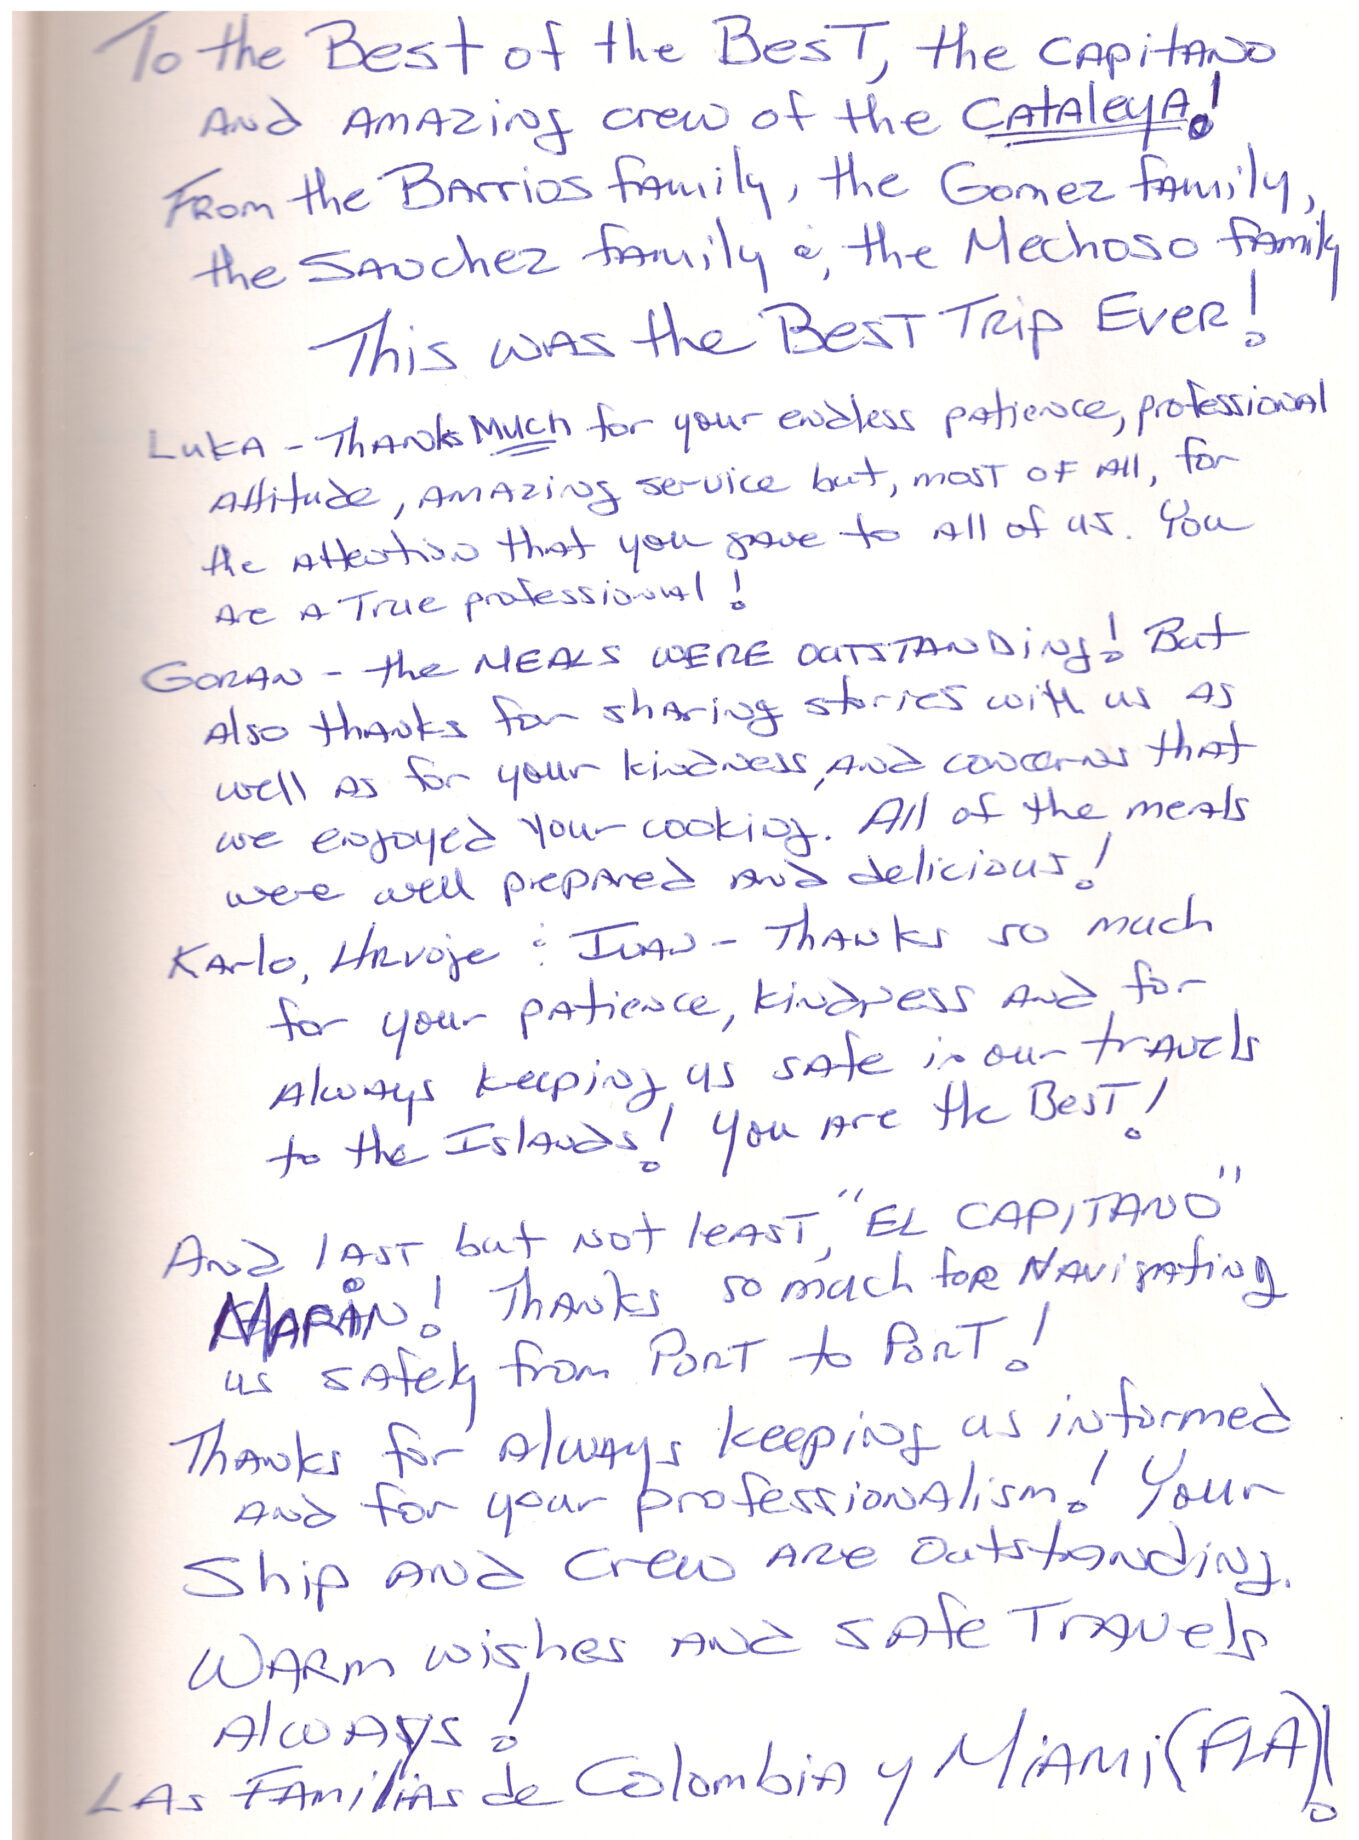 To the Best of the Best, the CAPitANO
AND AMAZING crew of the CATALEYA!
From the BARRIOS family, the Gomez family,
the SANCHEZ family &, the Mechoso family
This was the Best Trip Ever!
LUKA - Thanks Much for your endless patience, professional
attitude, amazing service but, most of all, for
the attention that you gave to all of us. You
are a True professional!
GORAN - the MEALS WERE OUTSTANDING! But
also thanks for sharing stories with us as
well as for your kindness, and concerns that
we enjoyed your cooking. All of the meals
were well prepared and delicious!
Karlo, HRvoje & IVAN - Thanks so much
for your patience, kindness and for
always keeping us safe in our travels
to the Islands! You are the Best!
And last but not least, "EL CAPITANO"
MARIN! Thanks so much for Navigating
us safely from Port to Port!
Thanks for always keeping us informed
and for your professionalism! Your
Ship and Crew are Outstanding.
Warm wishes and safe Travels
Always!
LAS FAMiliAS de Colombia y MiAMi (FLA)!